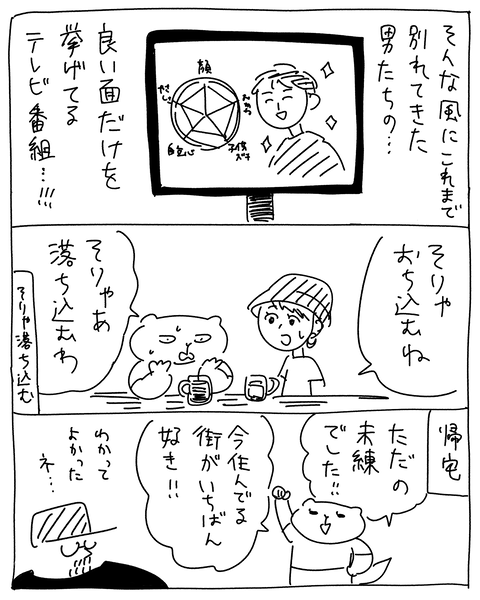 そんな風にこれまで
別れてきた
男たちの…
顔
やさしさ
自立心
子供
ズキ
良い面だけを
挙げてる
テレビ番組…!!!
そりゃ
おち込むね
そりゃあ
落ち込むわ
そりゃ落ち込む
帰宅
ただの
未練
でした!!
今住んでる
街がいちばん
好き!!
わかって
よかった
ネ…